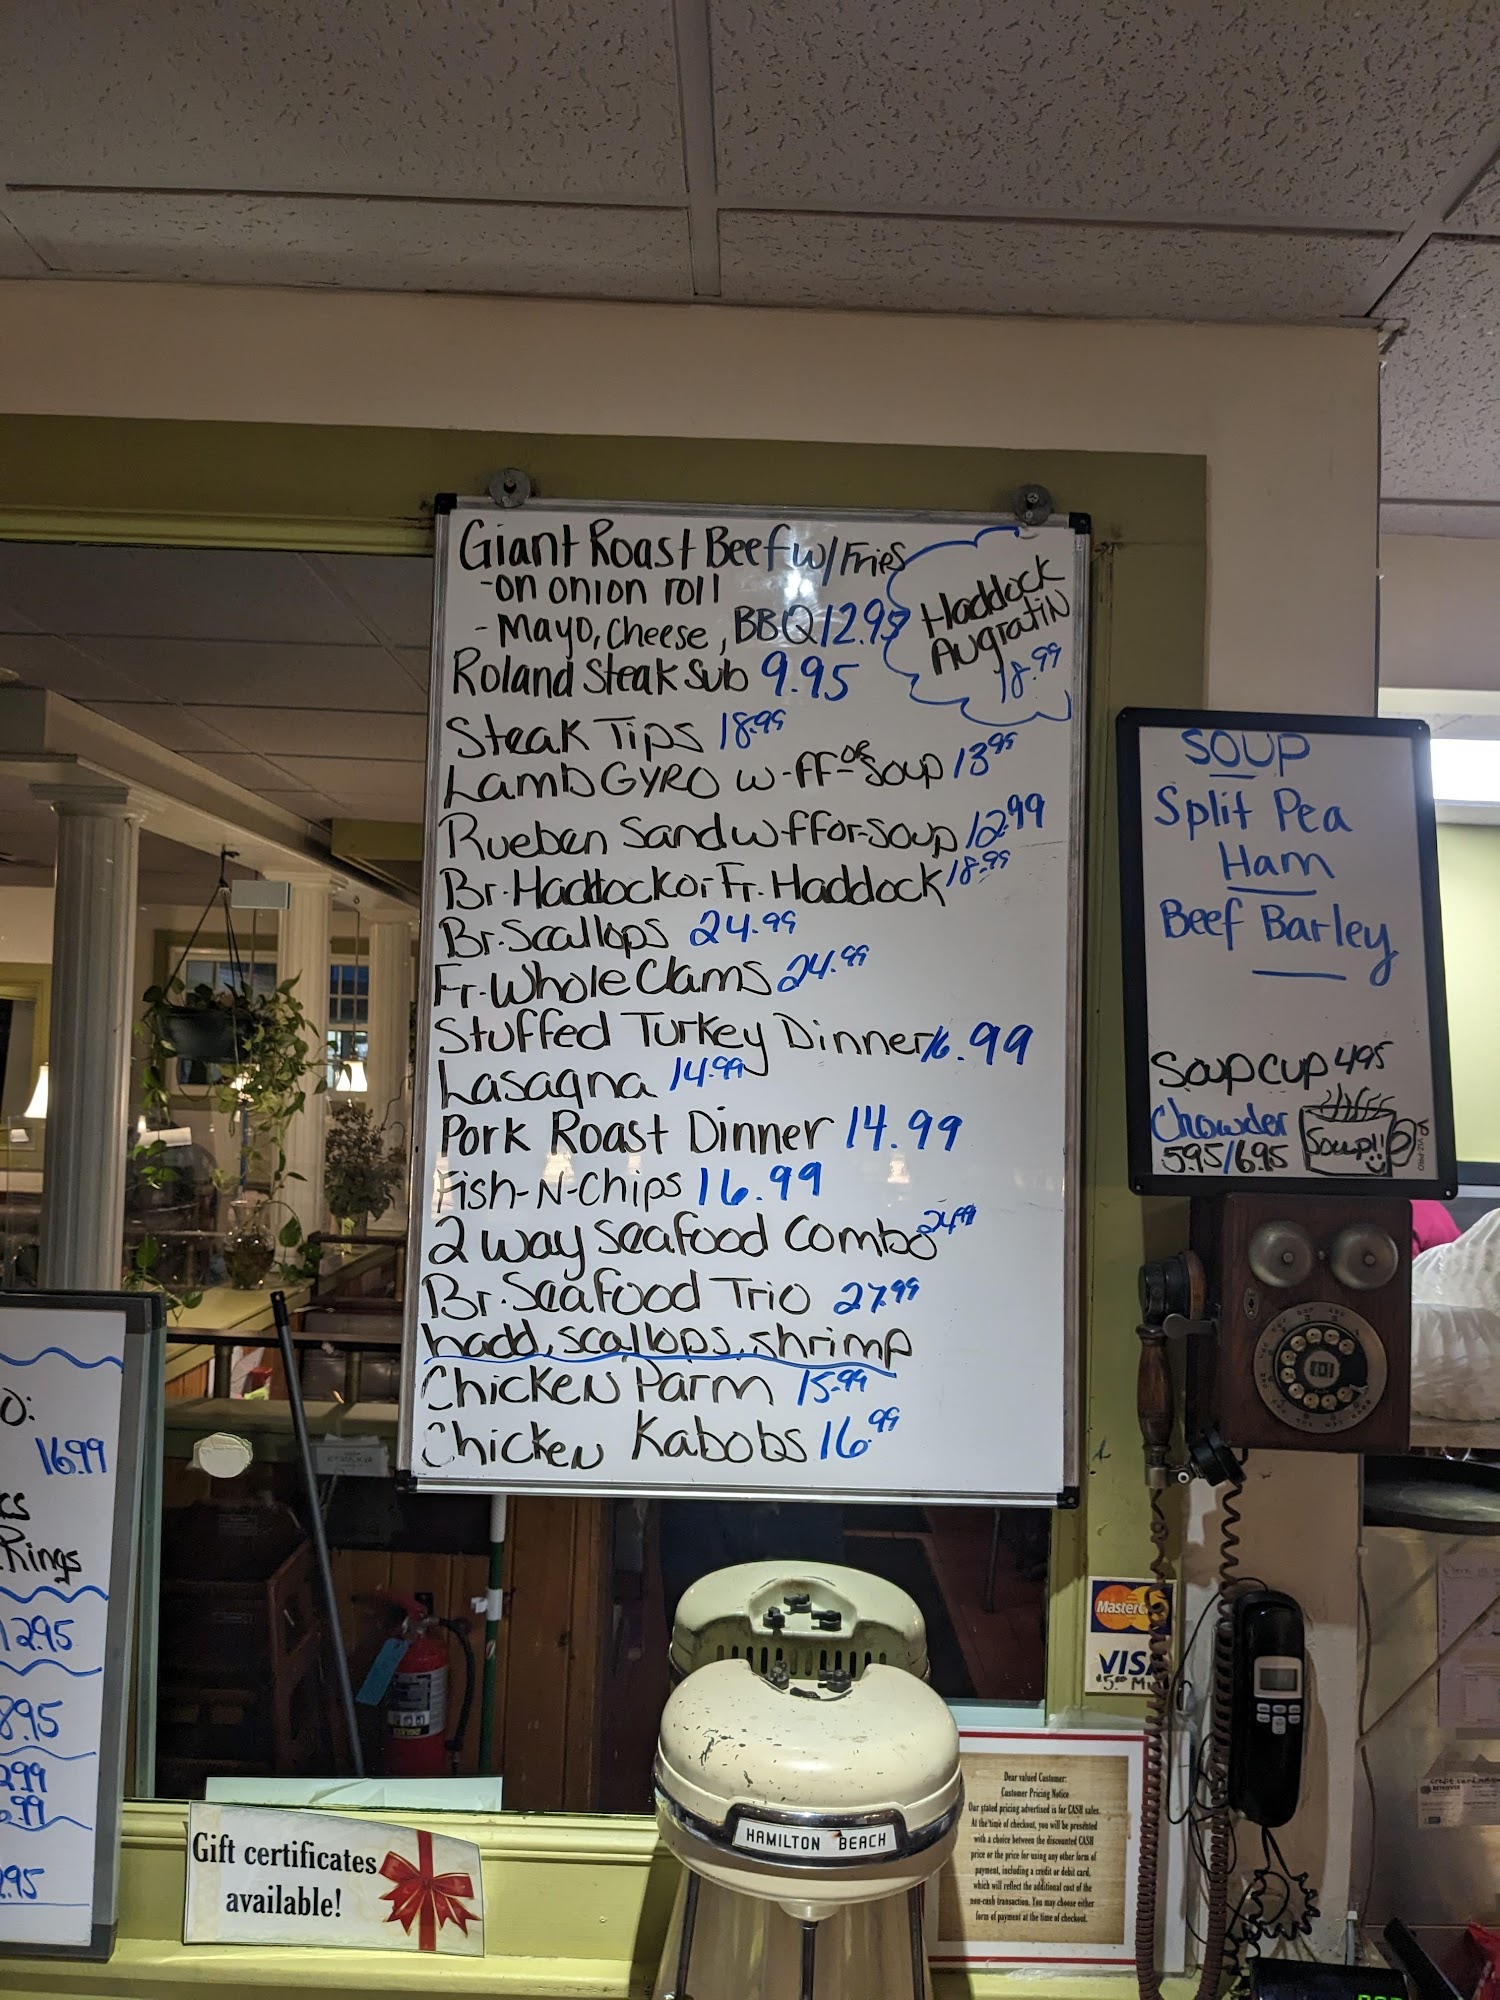 Giant Roast Beef w/Fries
-on onion roll
-Mayo, Cheese, BBQ 12.95
Roland Steak Sub 9.95
Haddock
Augratin
18.99
Steak Tips 18.99
Lamb GYRO w-ff-or soup 13.95
Rueben Sand w-ff or-soup 12.99
Br. Haddock or Fr. Haddock 18.99
Br. Scallops 24.99
Fr. Whole Clams 24.99
Stuffed Turkey Dinner 16.99
Lasagna 14.99
Pork Roast Dinner 14.99
Fish-N-Chips 16.99
2 way seafood combo 24.99
Br. Seafood Trio 27.99
hadd, scallops, shrimp
Chicken Parm 15.99
Chicken Kabobs 16.99
SOUP
Split Pea
Ham
Beef Barley
Soup cup 4.95
Chowder
5.95/6.95
Soup!!
O:
16.99
Rings
12.95
8.95
.99
.99
.95
MasterC
VISA
$5.00 Mi
HAMILTON BEACH
Gift certificates
available!
Dear valued Customer:
Customer Pricing Notice
Our stated pricing advertised is for CASH sales.
At the time of checkout, you will be presented
with a choice between the discounted CASH
price or the price for using any other form of
payment, including a credit or debit card,
which will reflect the additional cost of the
non-cash transaction. You may choose either
form of payment at the time of checkout.